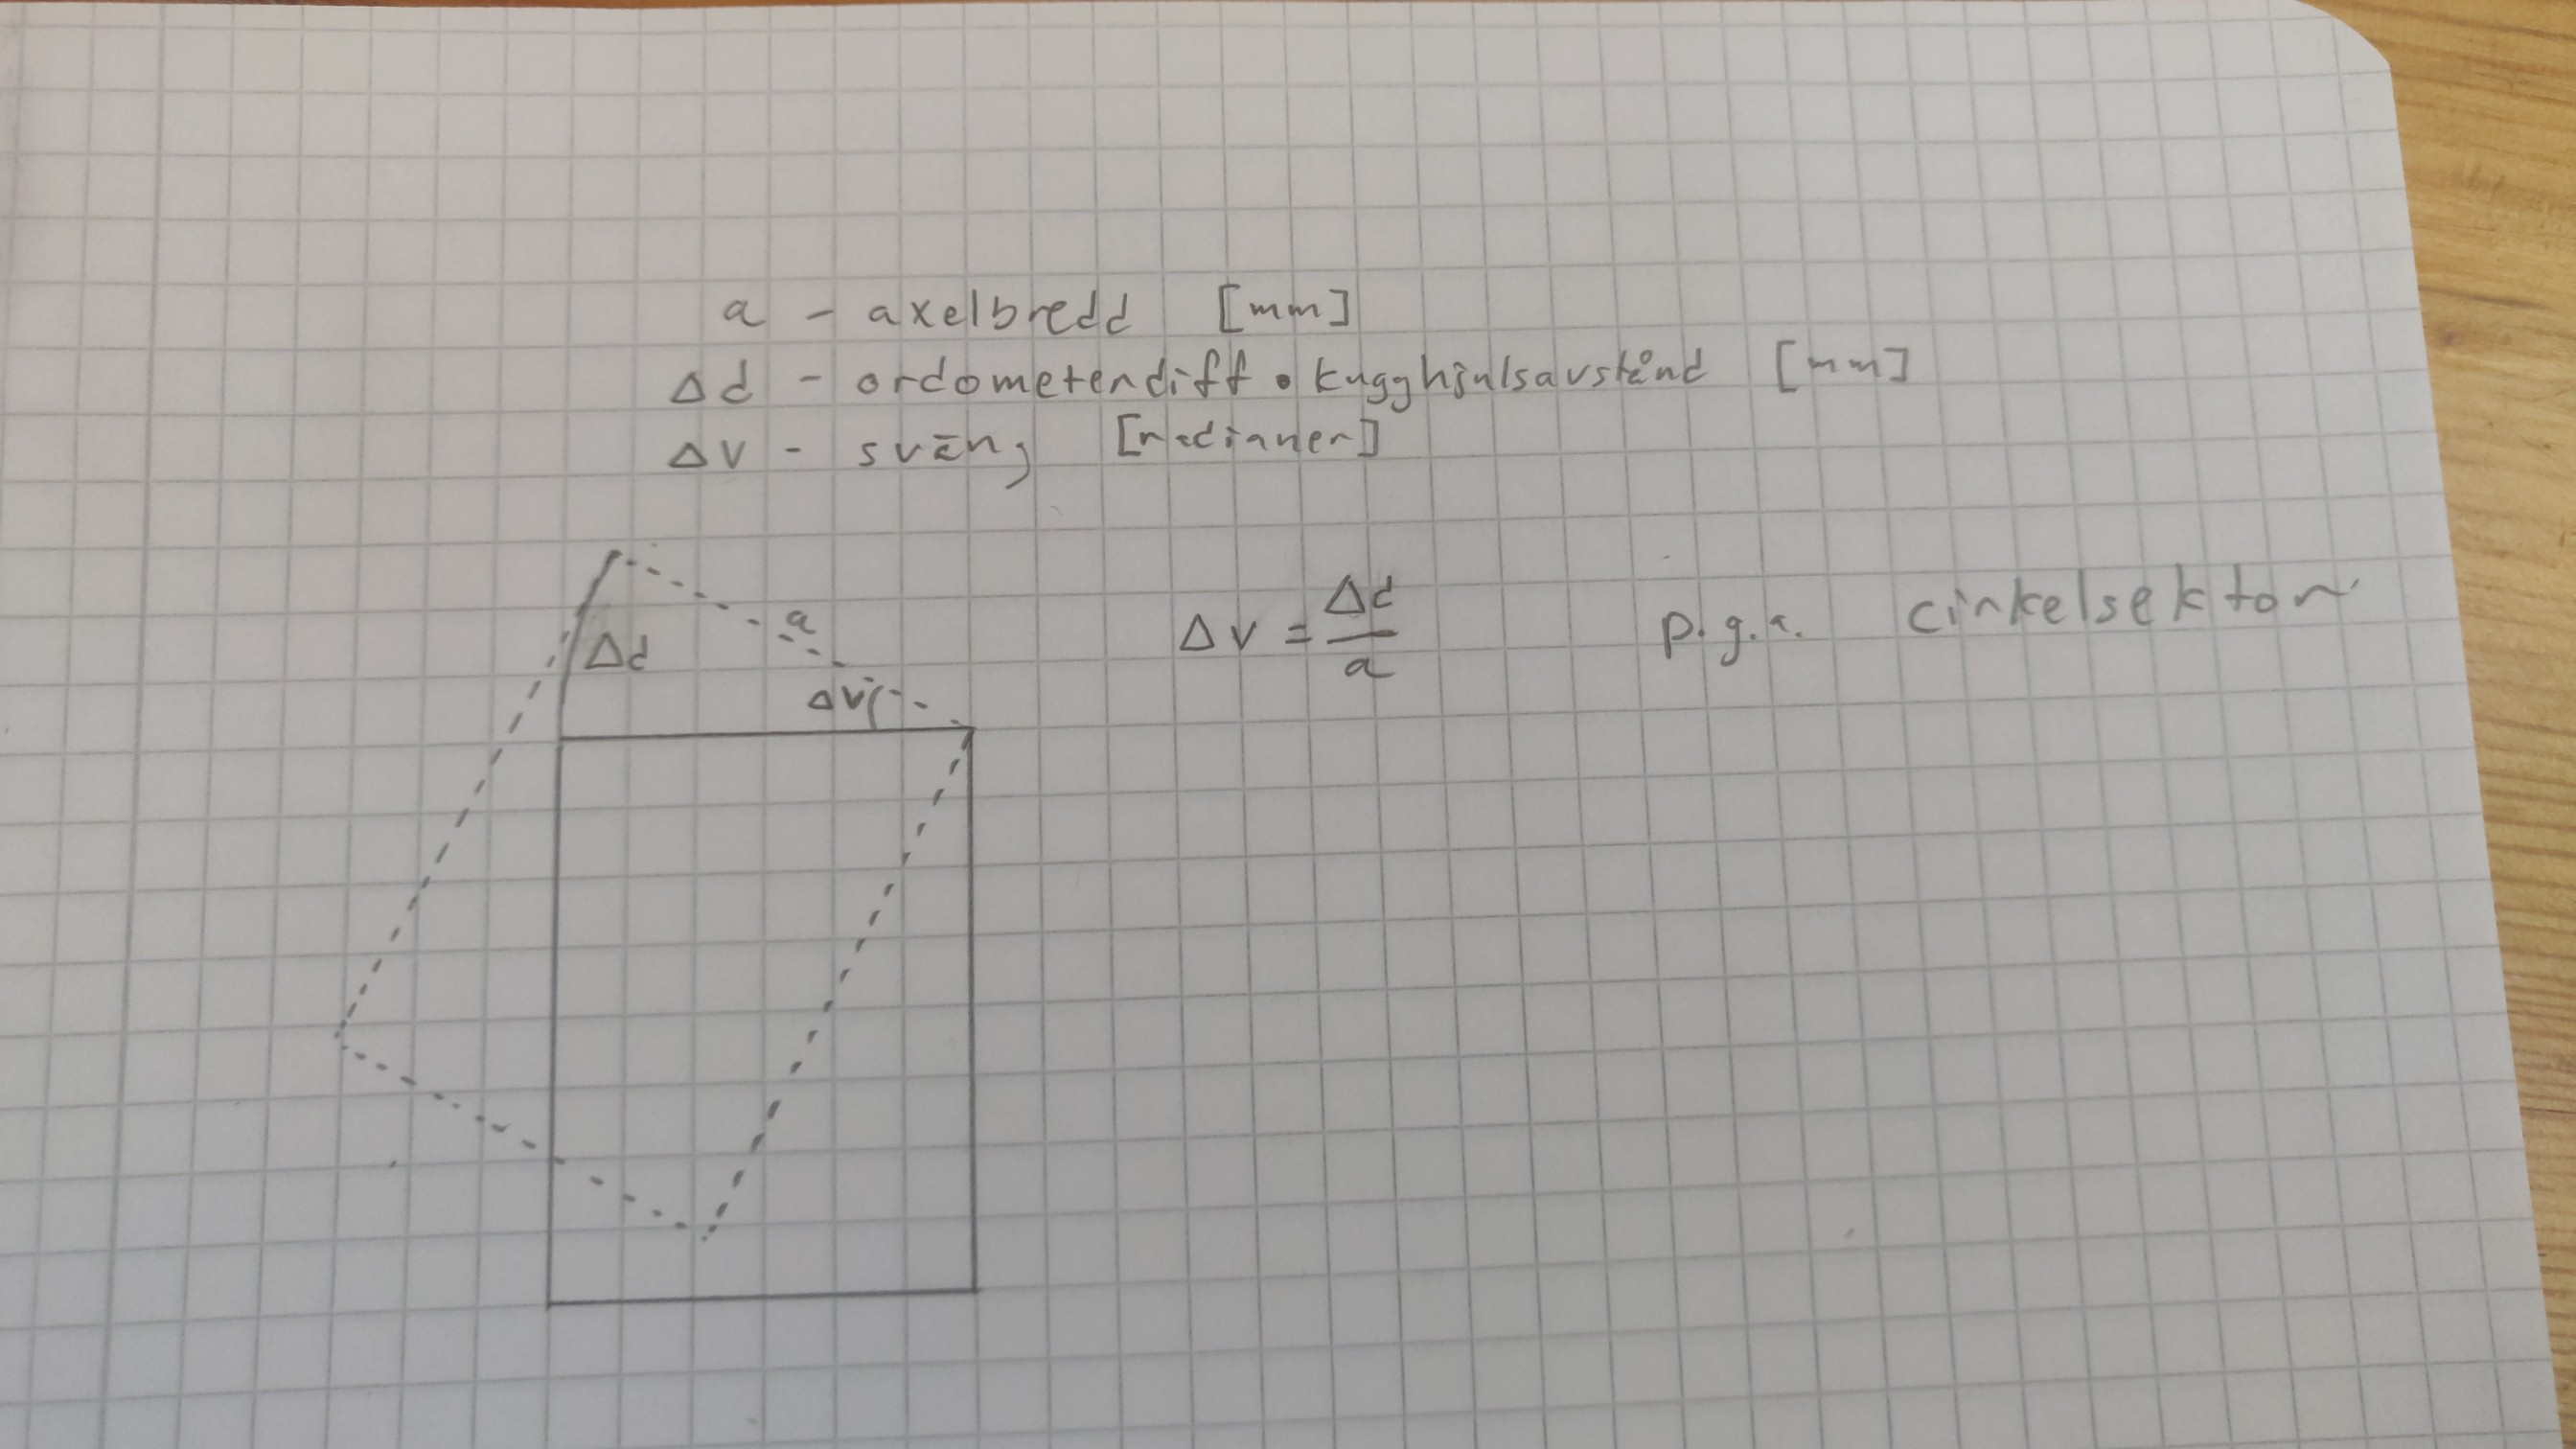 a - axelbredd [mm]
Δd - ordometerdiff • kugghjulsavstånd [mm]
Δv - sväng [radianer]
a
Δd
Δv
Δv = Δd/a p.g.a. cirkelsektor